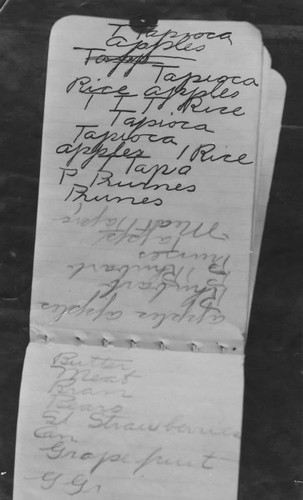 T Tapioca
apples
Tapp
Tapioca
Rice apples
T T T Rice
Tapioca
Tapioca
apples / Rice
Tapa
P Prunes
Prunes
Meat Tapioc
Tapp
Prunes
Rhubarb
Rhubarb
apples apples
Butter
Meat
Bran
Pears
St Strawberries
Can
Grapefruit
G Gr